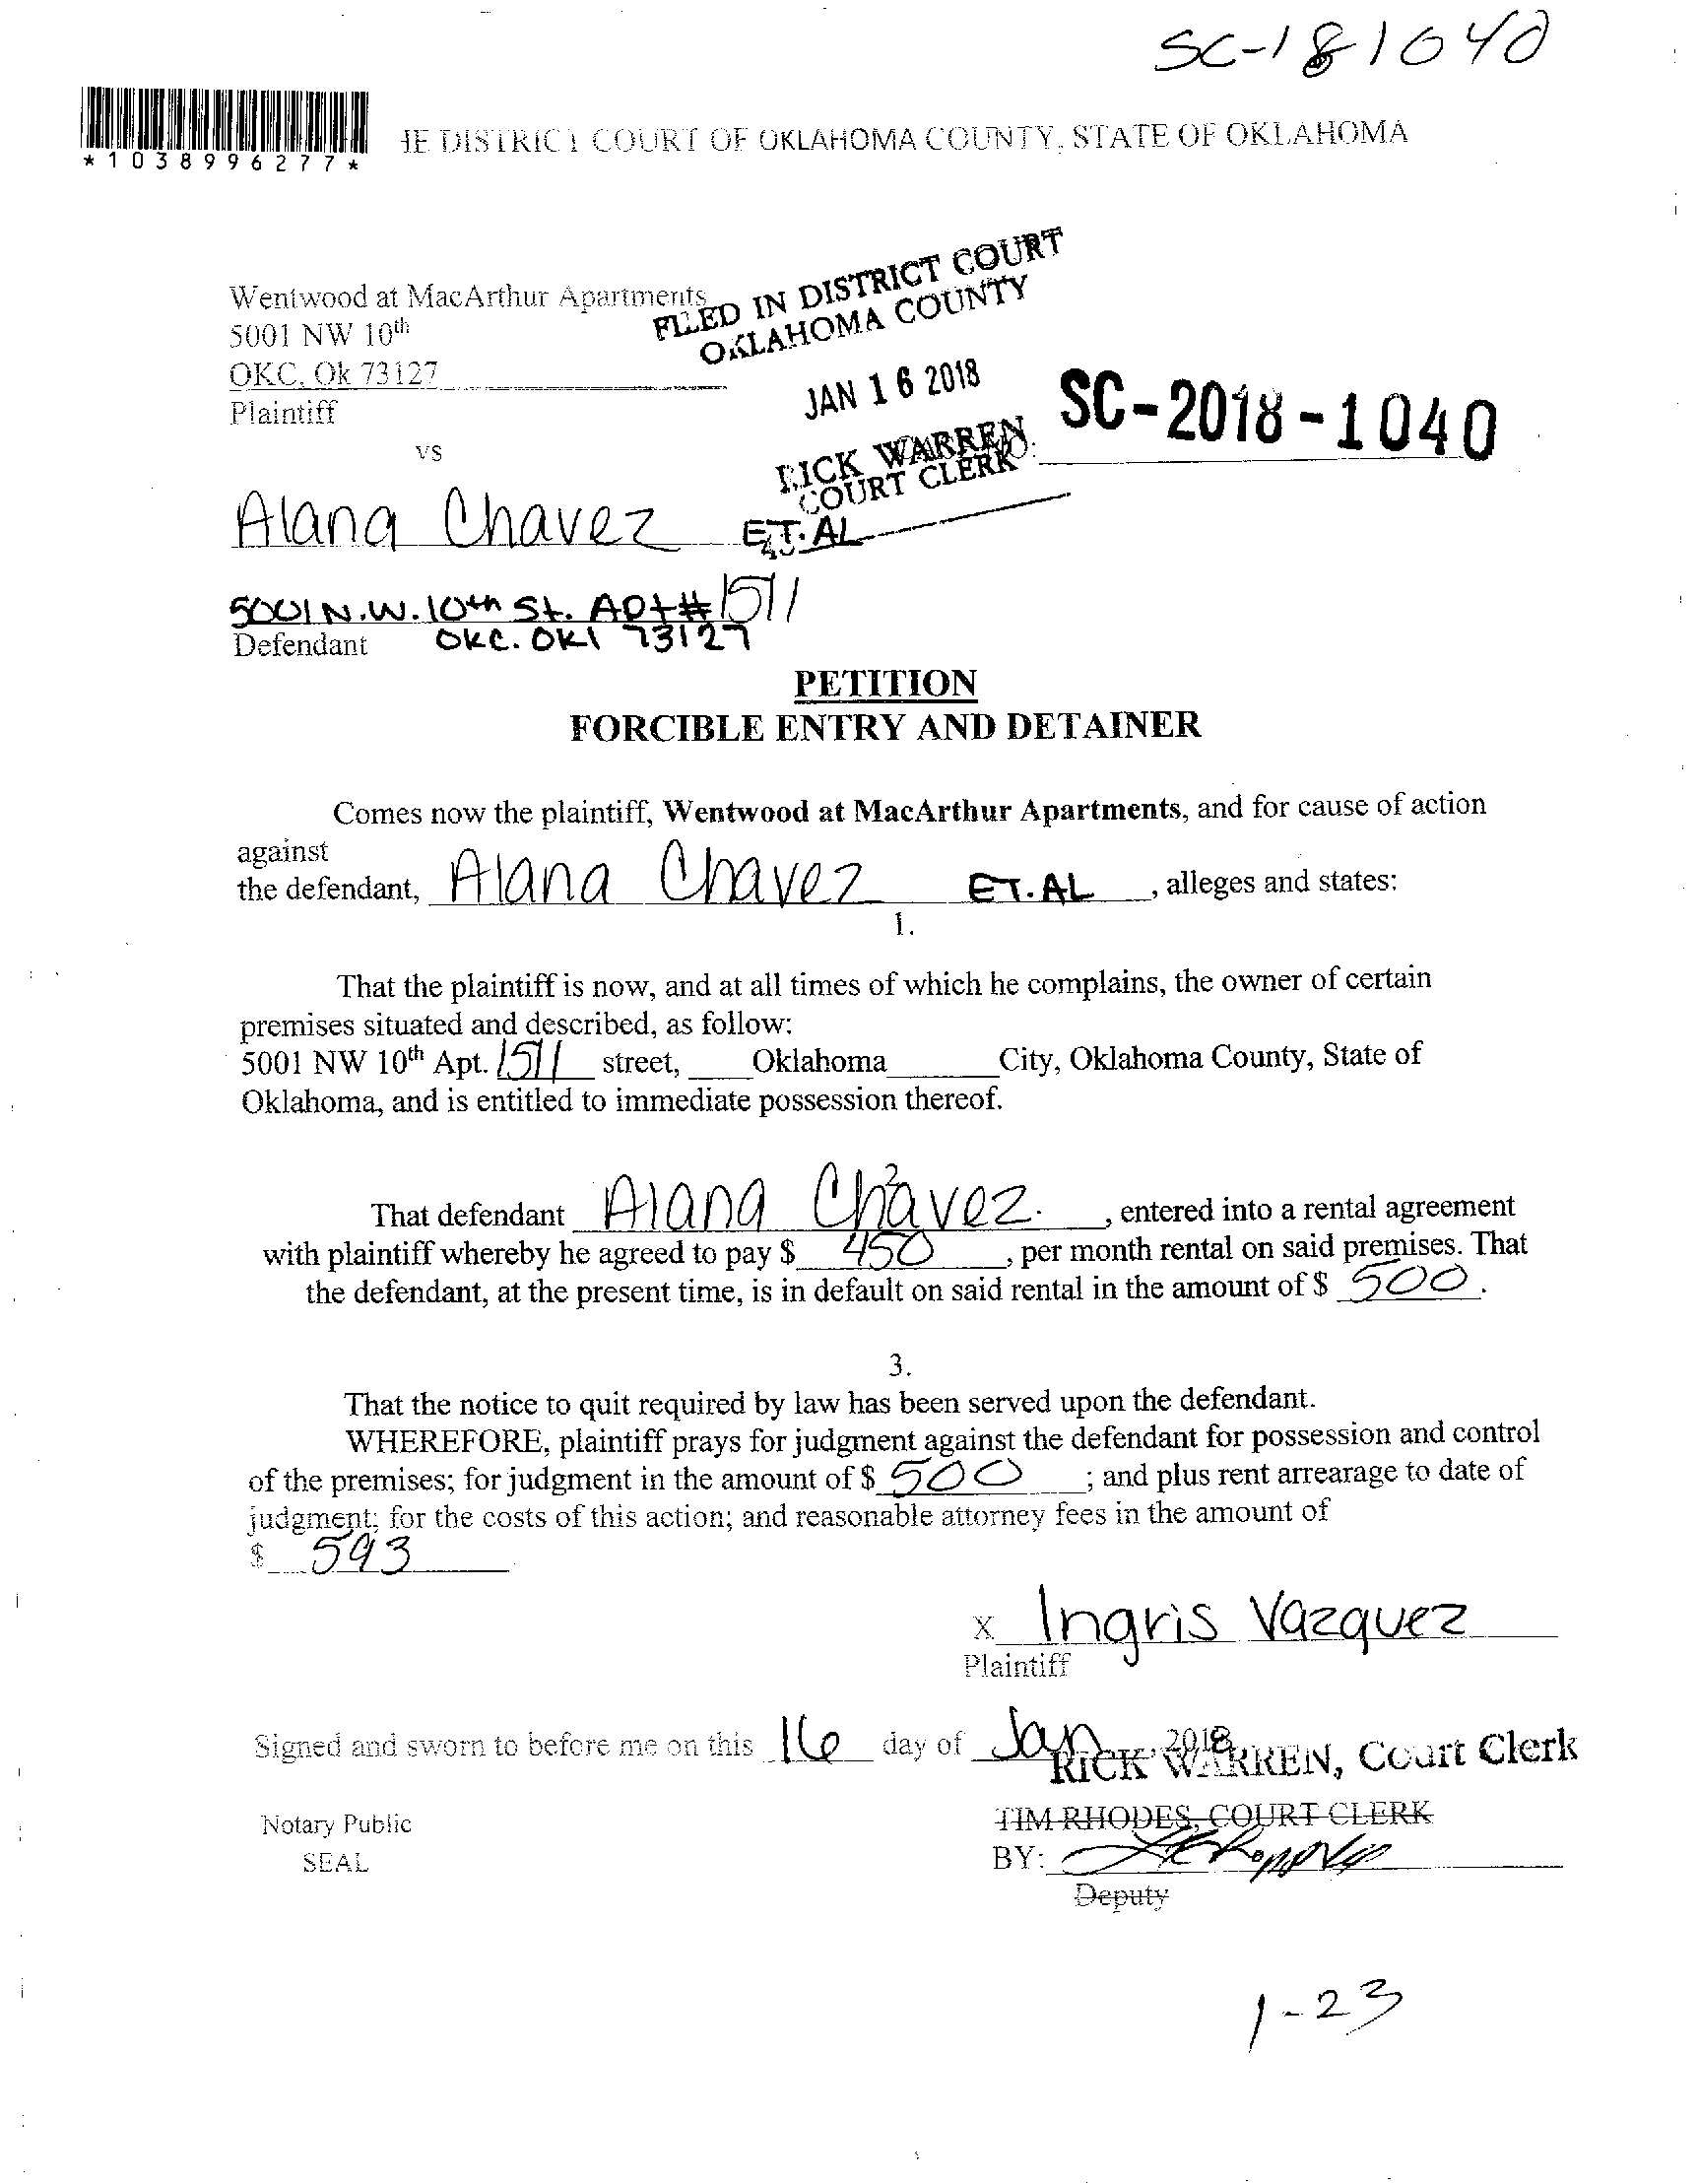 SC-181040
*1038996277*
HE DISTRICT COURT OF OKLAHOMA COUNTY, STATE OF OKLAHOMA
FILED IN DISTRICT COURT
OKLAHOMA COUNTY
Wentwood at MacArthur Apartments
5001 NW 10th
OKC, Ok 73127
Plaintiff
JAN 16 2018
SC-2018-1040
vs
RICK WARREN
COURT CLERK
Alana Chavez ET.AL
5001 N.W. 10th St. APt# 1511
Defendant OKC. OKl 73127
PETITION
FORCIBLE ENTRY AND DETAINER
Comes now the plaintiff, Wentwood at MacArthur Apartments, and for cause of action
against
the defendant, Alana Chavez ET.AL , alleges and states:
1.
That the plaintiff is now, and at all times of which he complains, the owner of certain
premises situated and described, as follow:
5001 NW 10th Apt. 1511 street, Oklahoma City, Oklahoma County, State of
Oklahoma, and is entitled to immediate possession thereof.
2
That defendant Alana Chavez. , entered into a rental agreement
with plaintiff whereby he agreed to pay $ 450 , per month rental on said premises. That
the defendant, at the present time, is in default on said rental in the amount of $ 500.
3.
That the notice to quit required by law has been served upon the defendant.
WHEREFORE, plaintiff prays for judgment against the defendant for possession and control
of the premises; for judgment in the amount of $ 500 ; and plus rent arrearage to date of
judgment; for the costs of this action; and reasonable attorney fees in the amount of
$ 593
X Ingris Vazquez
Plaintiff
Signed and sworn to before me on this 16 day of Jan 2018
RICK WARREN, Court Clerk
TIM RHODES, COURT CLERK
Notary Public
SEAL
BY:
Deputy
1-23